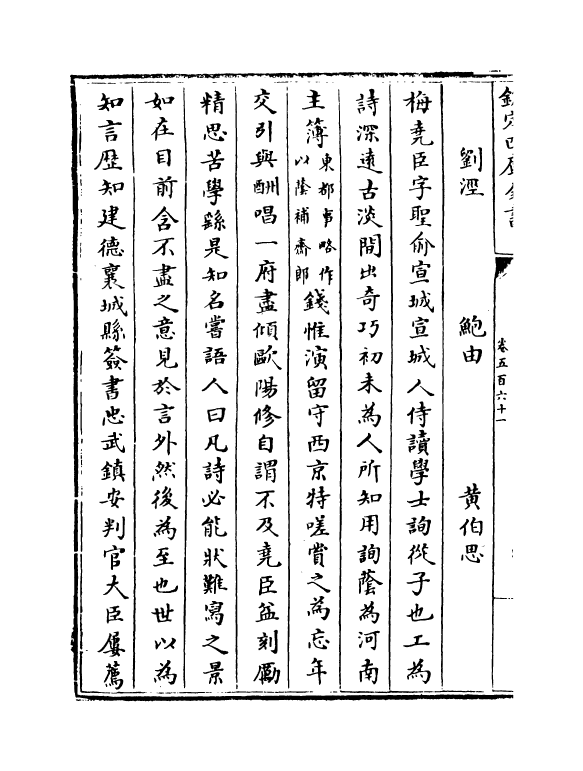 欽定四庫全書
卷五百六十一
劉涇 鮑由 黃伯思
梅堯臣字聖俞宣城宣城人侍讀學士詢從子也工為
詩深遠古淡間出奇巧初未為人所知用詢蔭為河南
主簿東都事略作以蔭補齋郎錢惟演留守西京特嗟賞之為忘年
交引與酬唱一府盡傾歐陽修自謂不及堯臣益刻勵
精思苦學繇是知名嘗語人曰凡詩必能狀難寫之景
如在目前含不盡之意見於言外然後為至也世以為
知言歴知建德襄城縣簽書忠武鎮安判官大臣屢薦